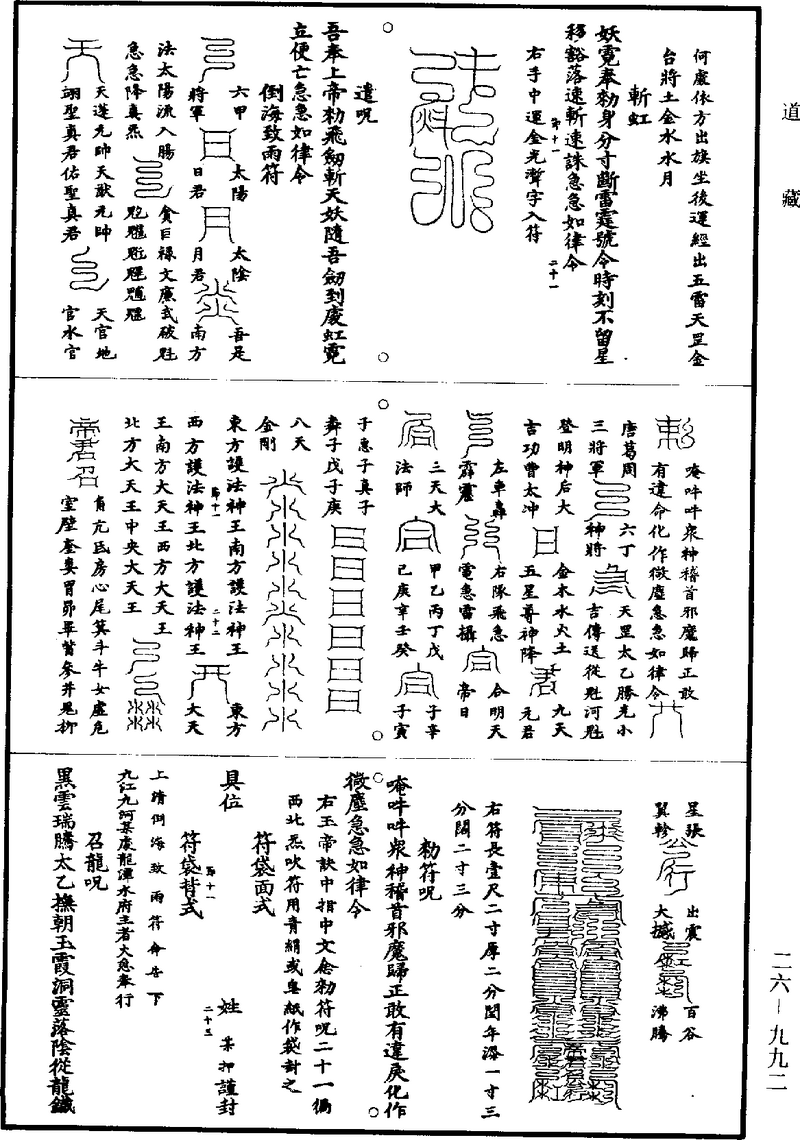 道藏
何處依方出旗坐後運經出五雷天罡金
台將土金水水月
斬虹
妖霓奉勑身分寸斷雷霆號令時刻不留星
移豁落速斬速誅急急如律令
二十一
右手中運金光濟字入符
遣呪
吾奉上帝勑飛劒斬天妖隨吾劒到處虹霓
立便亡急急如律令
倒海致雨符
六甲
將軍
太陽
日君
太陰
月君
吾是
南方
法太陽流入腸
急急降真炁
貪巨祿文廉武破魁
天蓬元帥天猷元帥
翊聖真君佑聖真君
天官地
官水官
唵吽吽衆神稽首邪魔歸正敢
有違令化作微塵急急如律令
唐葛周
三將軍
六丁
神將
天罡太乙勝光小
吉傳送從魁河魁
登明神后大
吉功曹太冲
金木水火土
五星尊神降
九天
元君
左車轟
霹靂
右隊飛急
電急雷攝
合明天
帝日
三天大
法師
甲乙丙丁戊
己庚辛壬癸
子辛
子寅
子惠子真子
舞子戊子庚
八天
金剛
東方護法神王南方護法神王
西方護法神王北方護法神王
二十二
東方
大天
王南方大天王西方大天王
北方大天王中央大天王
角亢氐房心尾箕斗牛女虛危
室壁奎婁胃昴畢觜參井鬼柳
星張
翼軫
出震
大撼
百谷
沸騰
右符長壹尺二寸厚二分閏年添一寸三
分闊二寸三分
勑符呪
唵吽吽衆神稽首邪魔歸正敢有違戾化作
微塵急急如律令
右玉帝訣中指中文念勑符呪二十一徧
西北炁吹符用青絹或皂紙作袋封之
符袋面式
具位 姓 某押謹封
二十三
符袋背式
上清倒海致雨符命告下
九江九河某處龍潭水府主者火急奉行
召龍呪
黑雲瑞騰太乙撫朝玉霞洞靈落陰從龍鐵
二六－九九二